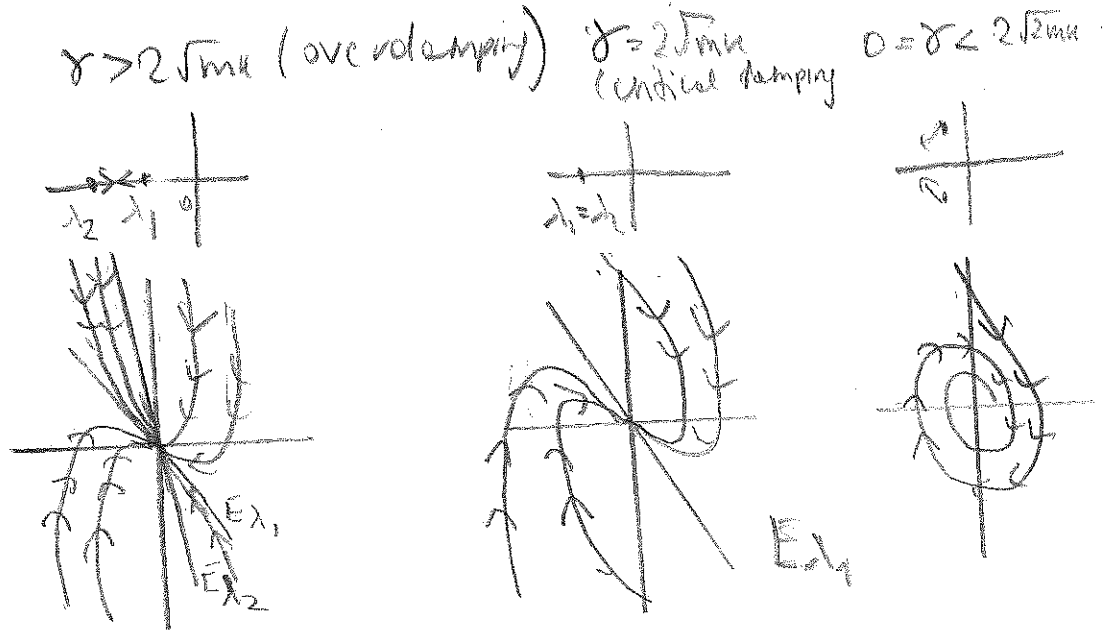 γ > 2√mk (overdamping)
γ = 2√mk
(critical damping
0 = γ < 2√2mk
λ₂ λ₁ 0
λ₁ = λ₂
E_λ₁
E_λ₂
E_λ₁